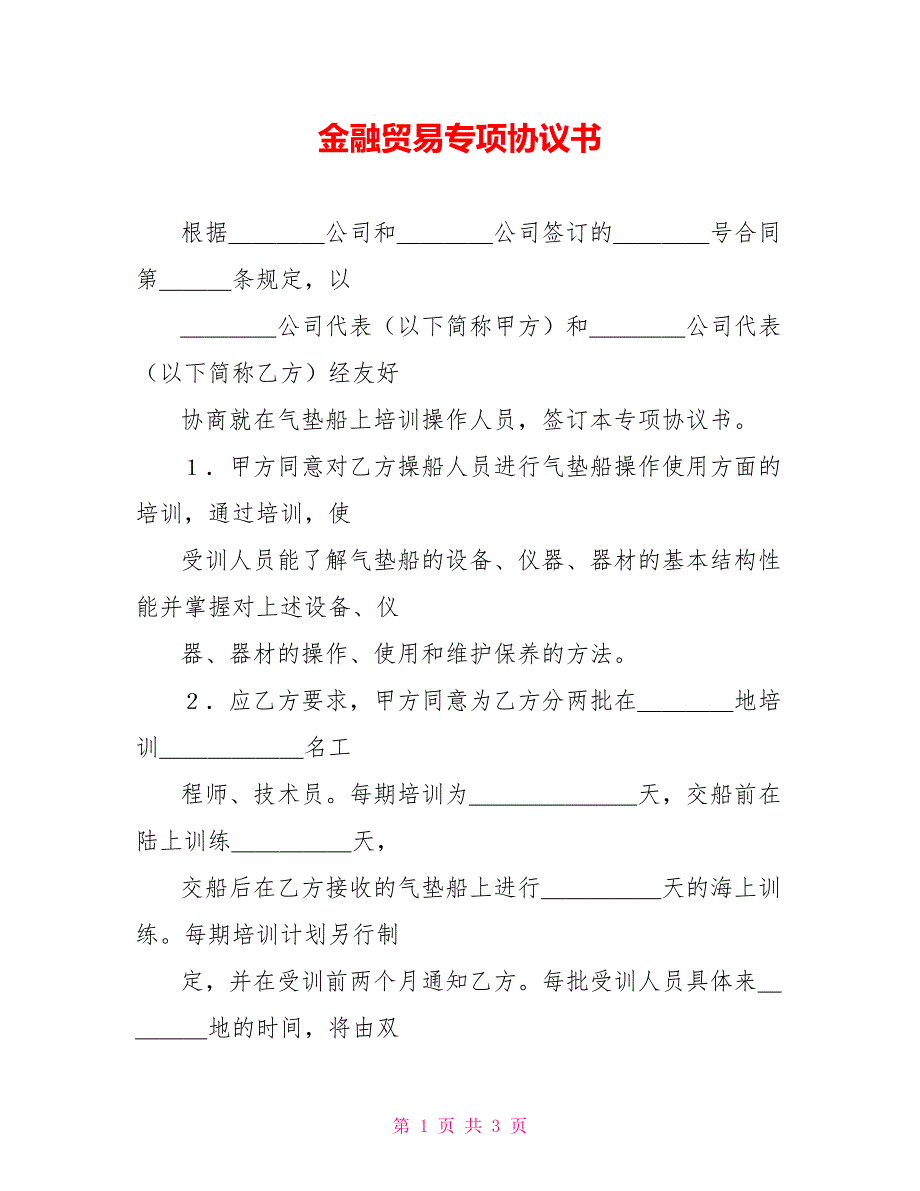 金融贸易专项协议书
根据________公司和________公司签订的________号合同
第______条规定，以
________公司代表（以下简称甲方）和________公司代表
（以下简称乙方）经友好
协商就在气垫船上培训操作人员，签订本专项协议书。
１．甲方同意对乙方操船人员进行气垫船操作使用方面的
培训，通过培训，使
受训人员能了解气垫船的设备、仪器、器材的基本结构性
能并掌握对上述设备、仪
器、器材的操作、使用和维护保养的方法。
２．应乙方要求，甲方同意为乙方分两批在________地培
训____________名工
程师、技术员。每期培训为______________天，交船前在
陆上训练__________天，
交船后在乙方接收的气垫船上进行__________天的海上训
练。每期培训计划另行制
定，并在受训前两个月通知乙方。每批受训人员具体来__
______地的时间，将由双
第 1 页 共 3 页